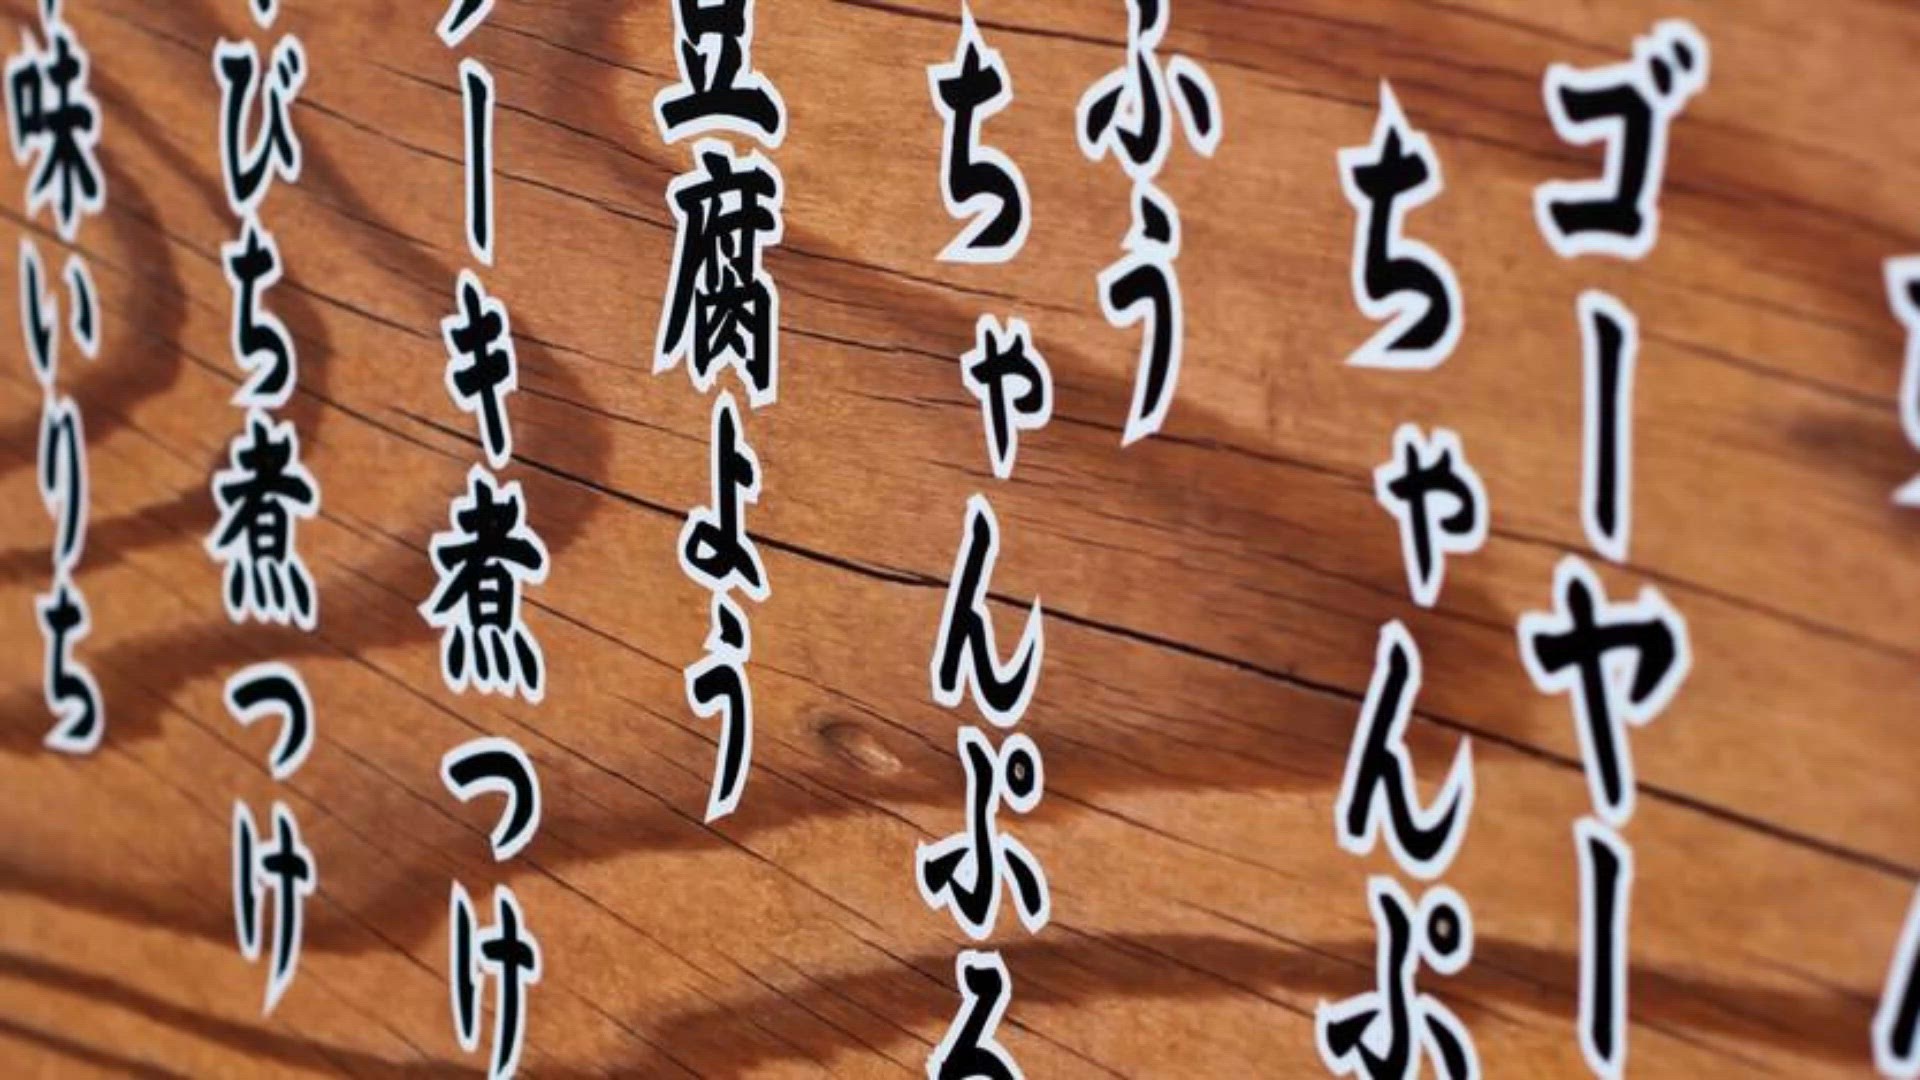 ゴーヤー
ちゃんぷ
ふう
ちゃんぷる
豆腐よう
ーキ煮つけ
びち煮つけ
味いりち